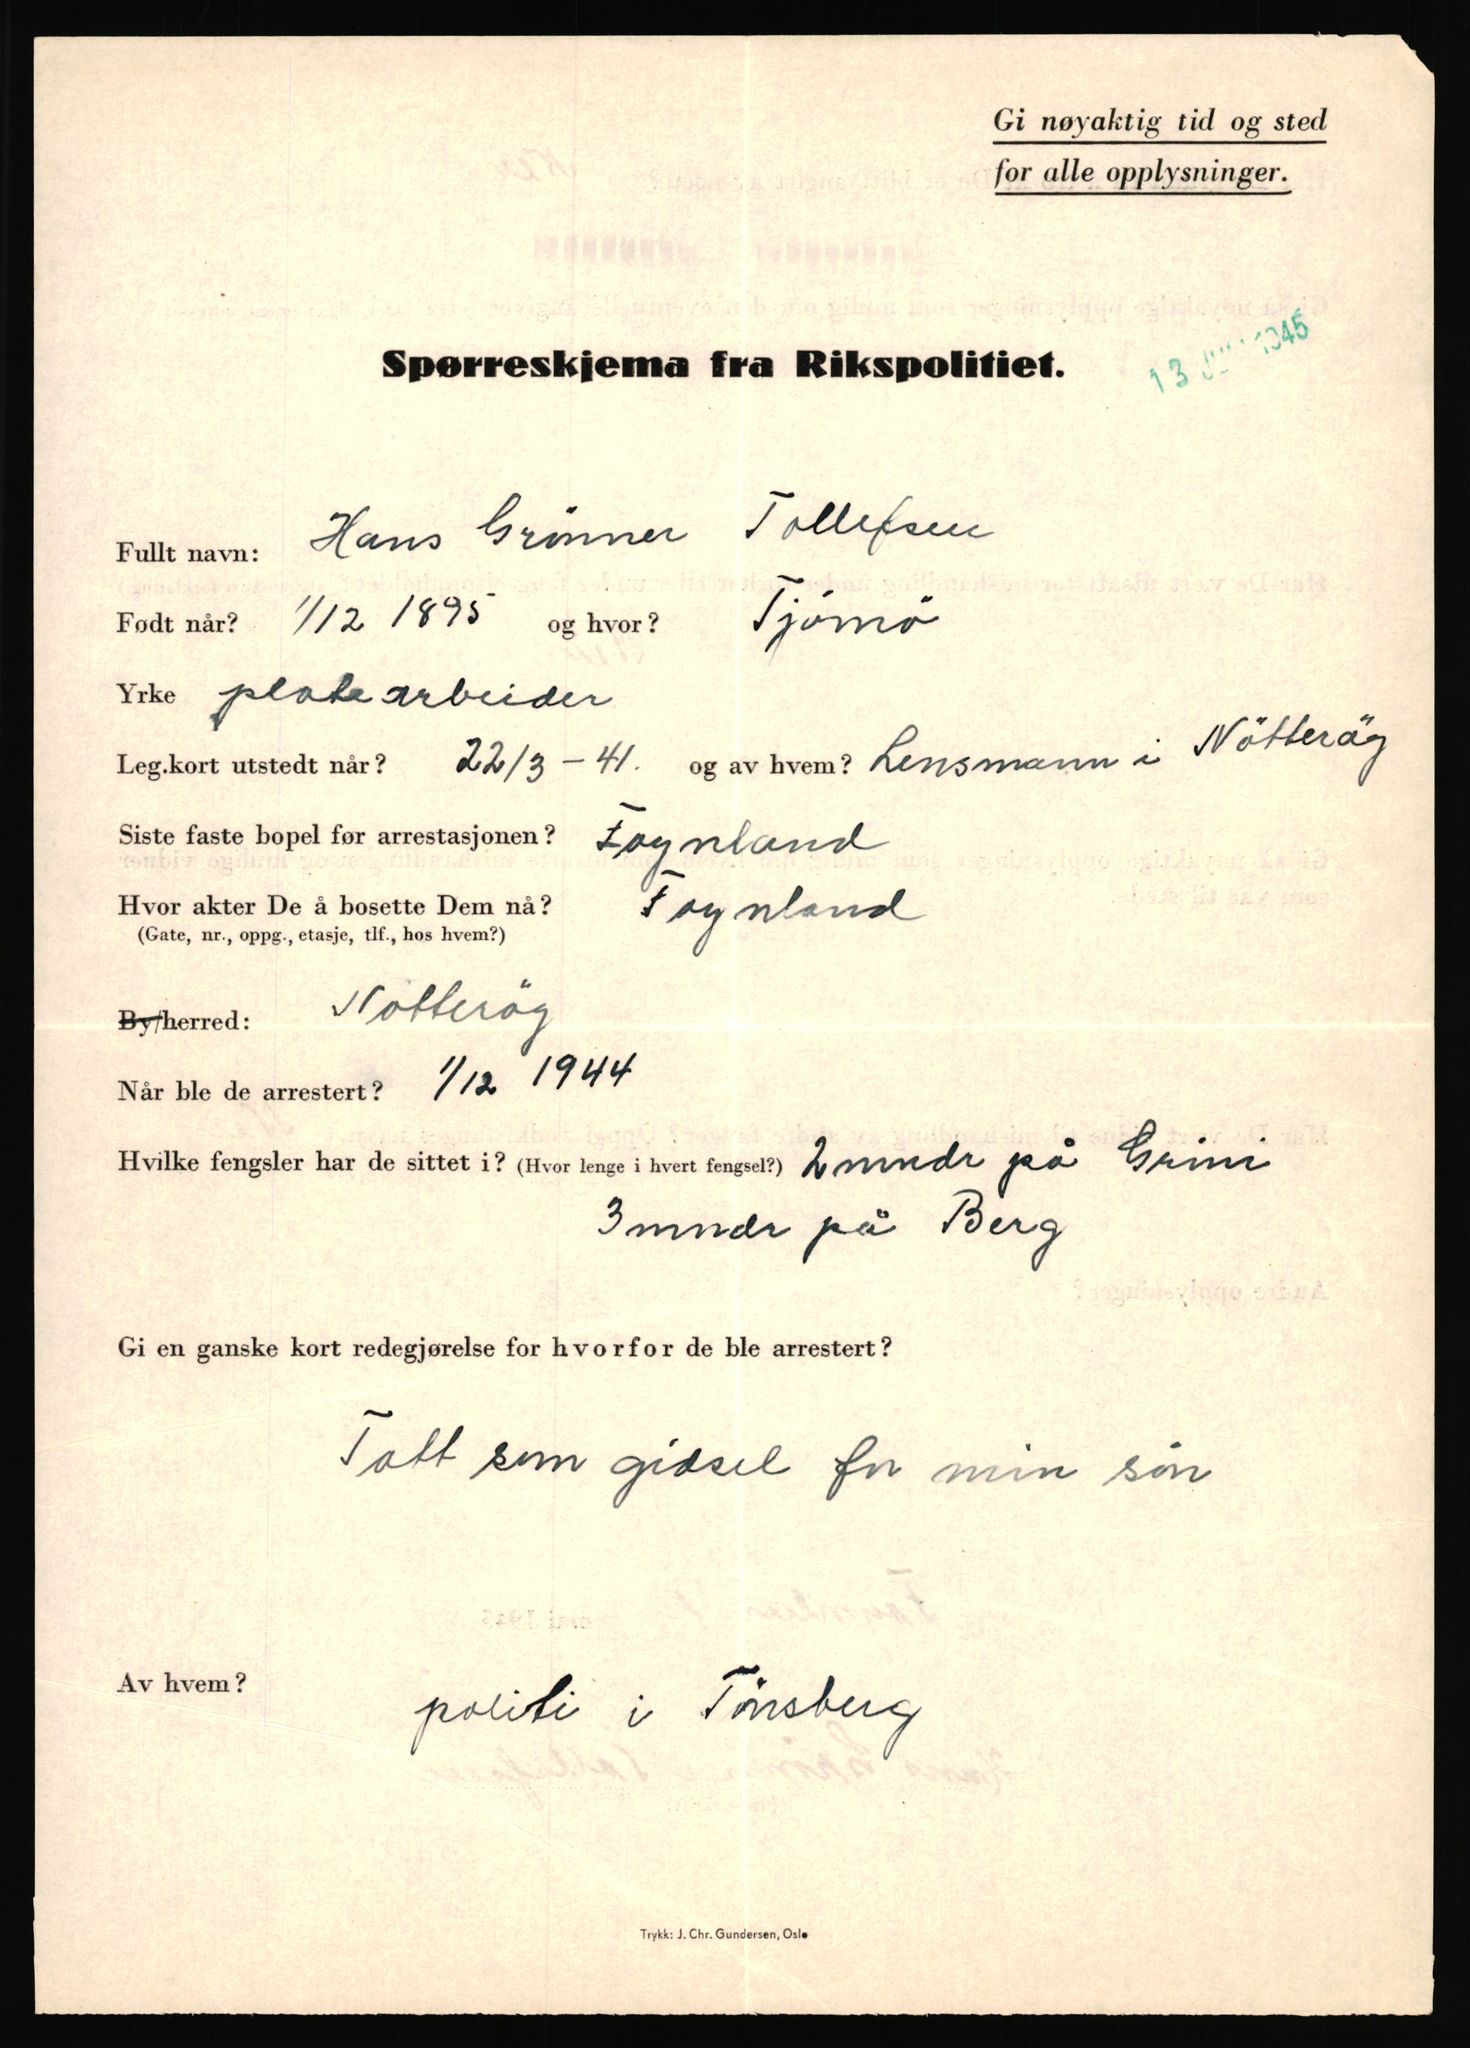 Gi nøyaktig tid og sted
for alle opplysninger.
Spørreskjema fra Rikspolitiet.
13 1945
Fullt navn: Hans Grönner Tollefsen
Født når? 1/12 1895 og hvor? Tjömö
Yrke platearbeider
Leg.kort utstedt når? 22/3 - 41. og av hvem? Lensmann i Nötteröy
Siste faste bopel før arrestasjonen? Foynland
Hvor akter De å bosette Dem nå? Foynland
(Gate, nr., oppg., etasje, tlf., hos hvem?)
By/herred: Notteröy
Når ble de arrestert? 1/12 1944
Hvilke fengsler har de sittet i? (Hvor lenge i hvert fengsel?) 2 mndr på Grini
3 mndr på Berg
Gi en ganske kort redegjørelse for hvorfor de ble arrestert?
Tatt som gidsel for min sön
Av hvem? politi i Tönsberg
Trykk: J. Chr. Gundersen, Oslo